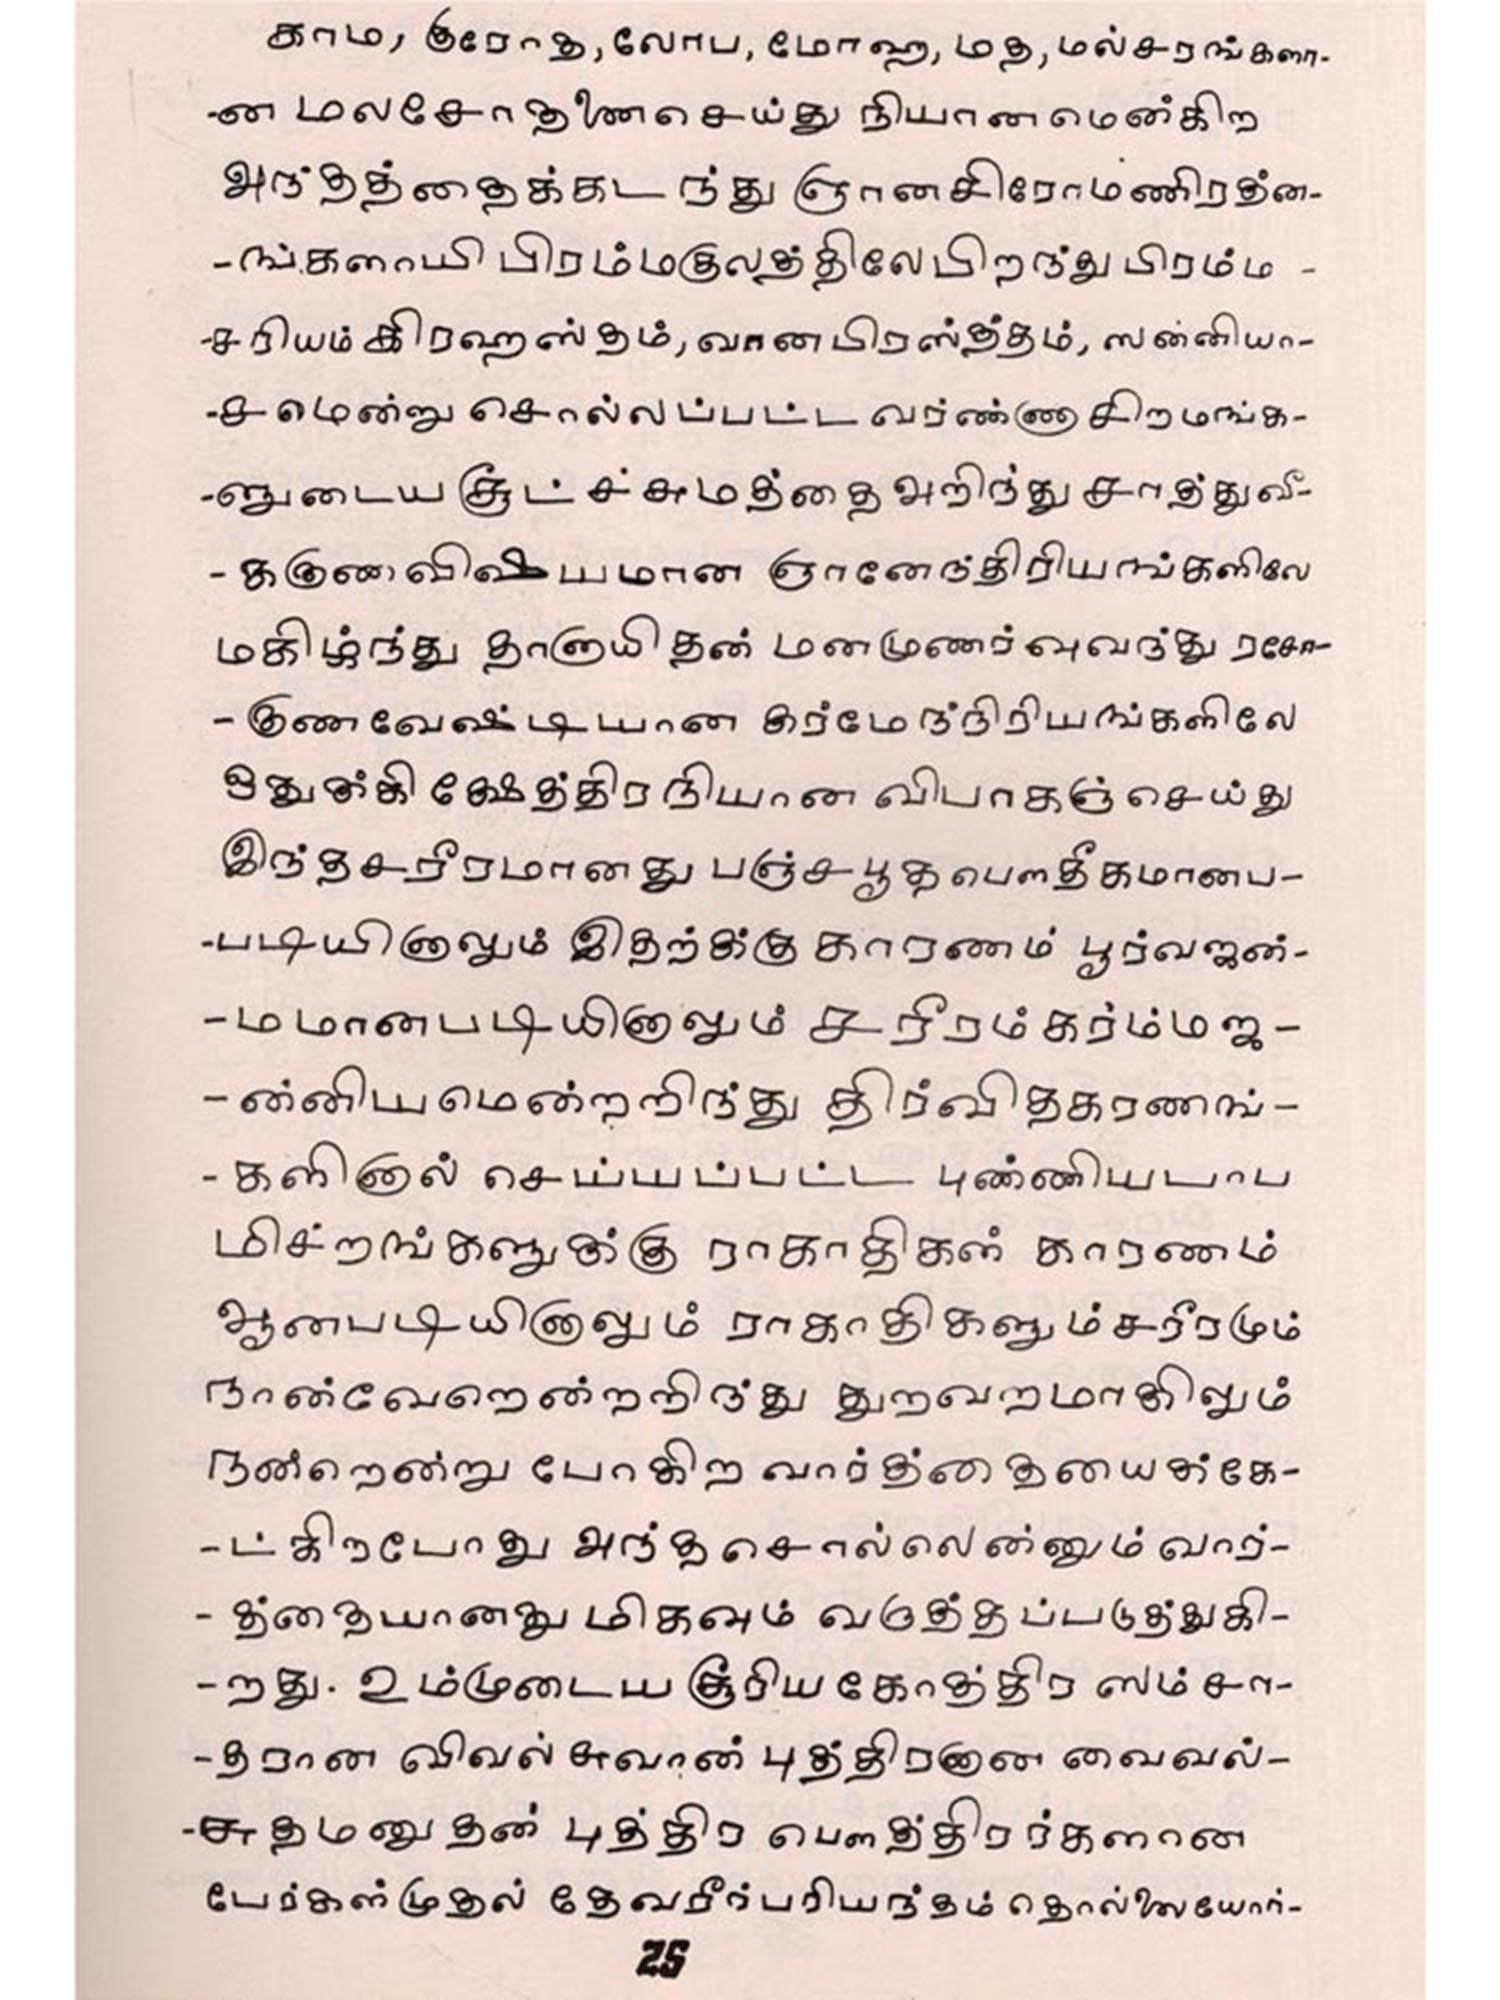 காம, குரோத, லோப, மோஹ, மத, மல்சரங்களா-
-ன மலசோதனைசெய்து நியானமென்கிற
அந்தத்தைக்கடந்து ஞானசிரோமணிரத்ன-
-ங்களாயி பிரம்மகுலத்திலேபிறந்து பிரம்ம -
-சரியம் கிரஹஸ்தம், வானபிரஸ்த்தம், ஸன்னியா-
-சமென்று சொல்லப்பட்ட வர்ண்ணாசிறமங்க-
-ளுடைய சூட்ச்சுமத்தை அறிந்து சாத்துவீ-
-ககுணவிஷயமான ஞானேந்திரியங்களிலே
மகிழ்ந்து தாளுயிதன் மனமுணர்வுவந்து ரசோ-
-குணவேஷ்டியான கர்மேந்நிரியங்களிலே
ஒதுக்கி க்ஷேத்திரநியான விபாகஞ்செய்து
இந்தசரீரமானது பஞ்சபூத பௌதீகமானப-
-படியினாலும் இதற்க்கு காரணம் பூர்வஜன்-
-மமானபடியினாலும் சரீரம் கர்ம்மஜ-
-ன்னியமென்றறிந்து திர்விதகரணங்-
-களினால் செய்யப்பட்ட புண்ணியபாப
மிச்றங்களுக்கு ராகாதிகள் காரணம்
ஆனபடியினாலும் ராகாதிகளும்சரீரமும்
நான்வேறென்றறிந்து துறவறமாகிலும்
நன்றென்று போகிற வார்த்தையைக்கே-
-ட்கிறபோது அந்த சொல்லென்னும் வார்-
-த்தையானது மிகவும் வருத்தப்படுத்துகி-
-றது. உம்முடைய சூரிய கோத்திர ஸம்சா-
-தரான விவல்சுவான் புத்திரனான வைவல்-
-சுதமனுதன் புத்திர பௌத்திரர்களான
பேர்கள்முதல் தேவரீர்பரியந்தம் தொல்லையோர்-
25